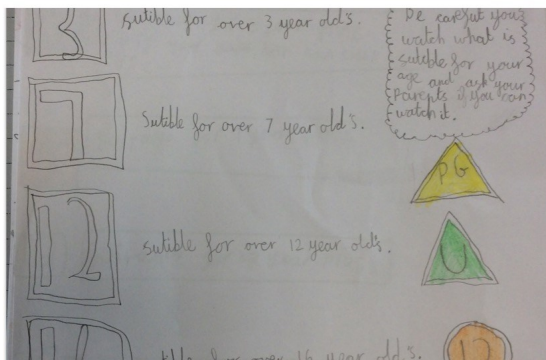 3
sutible for over 3 year old's.
Be careful you
watch what is
sutible for your
age and ask your
Parents if you can
watch it.
7
Sutible for over 7 year old's.
PG
12
sutible for over 12 year old's.
U
for over 16 year old's.
12